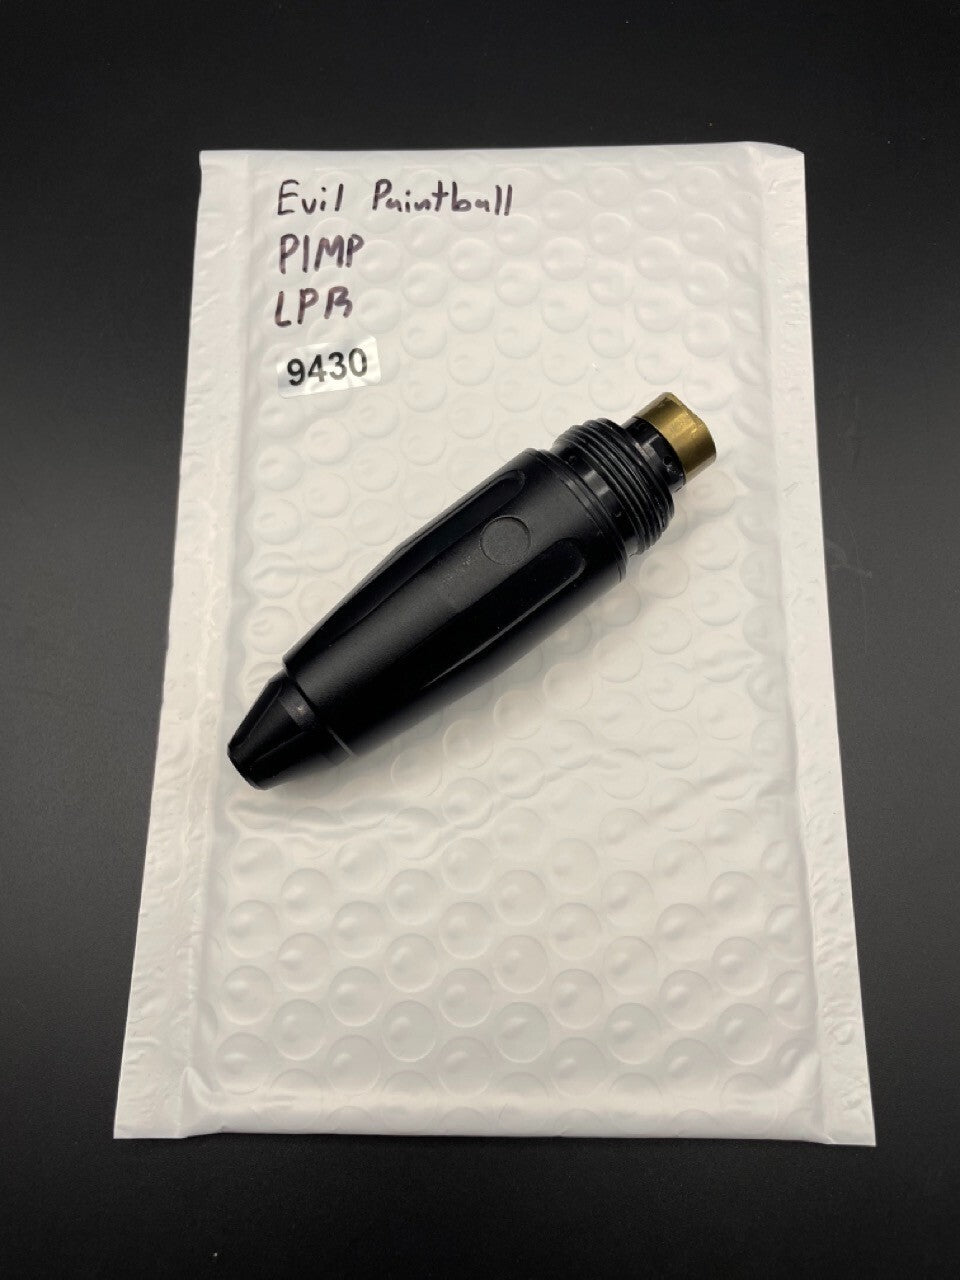 Evil Paintball
PIMP
LPR
9430